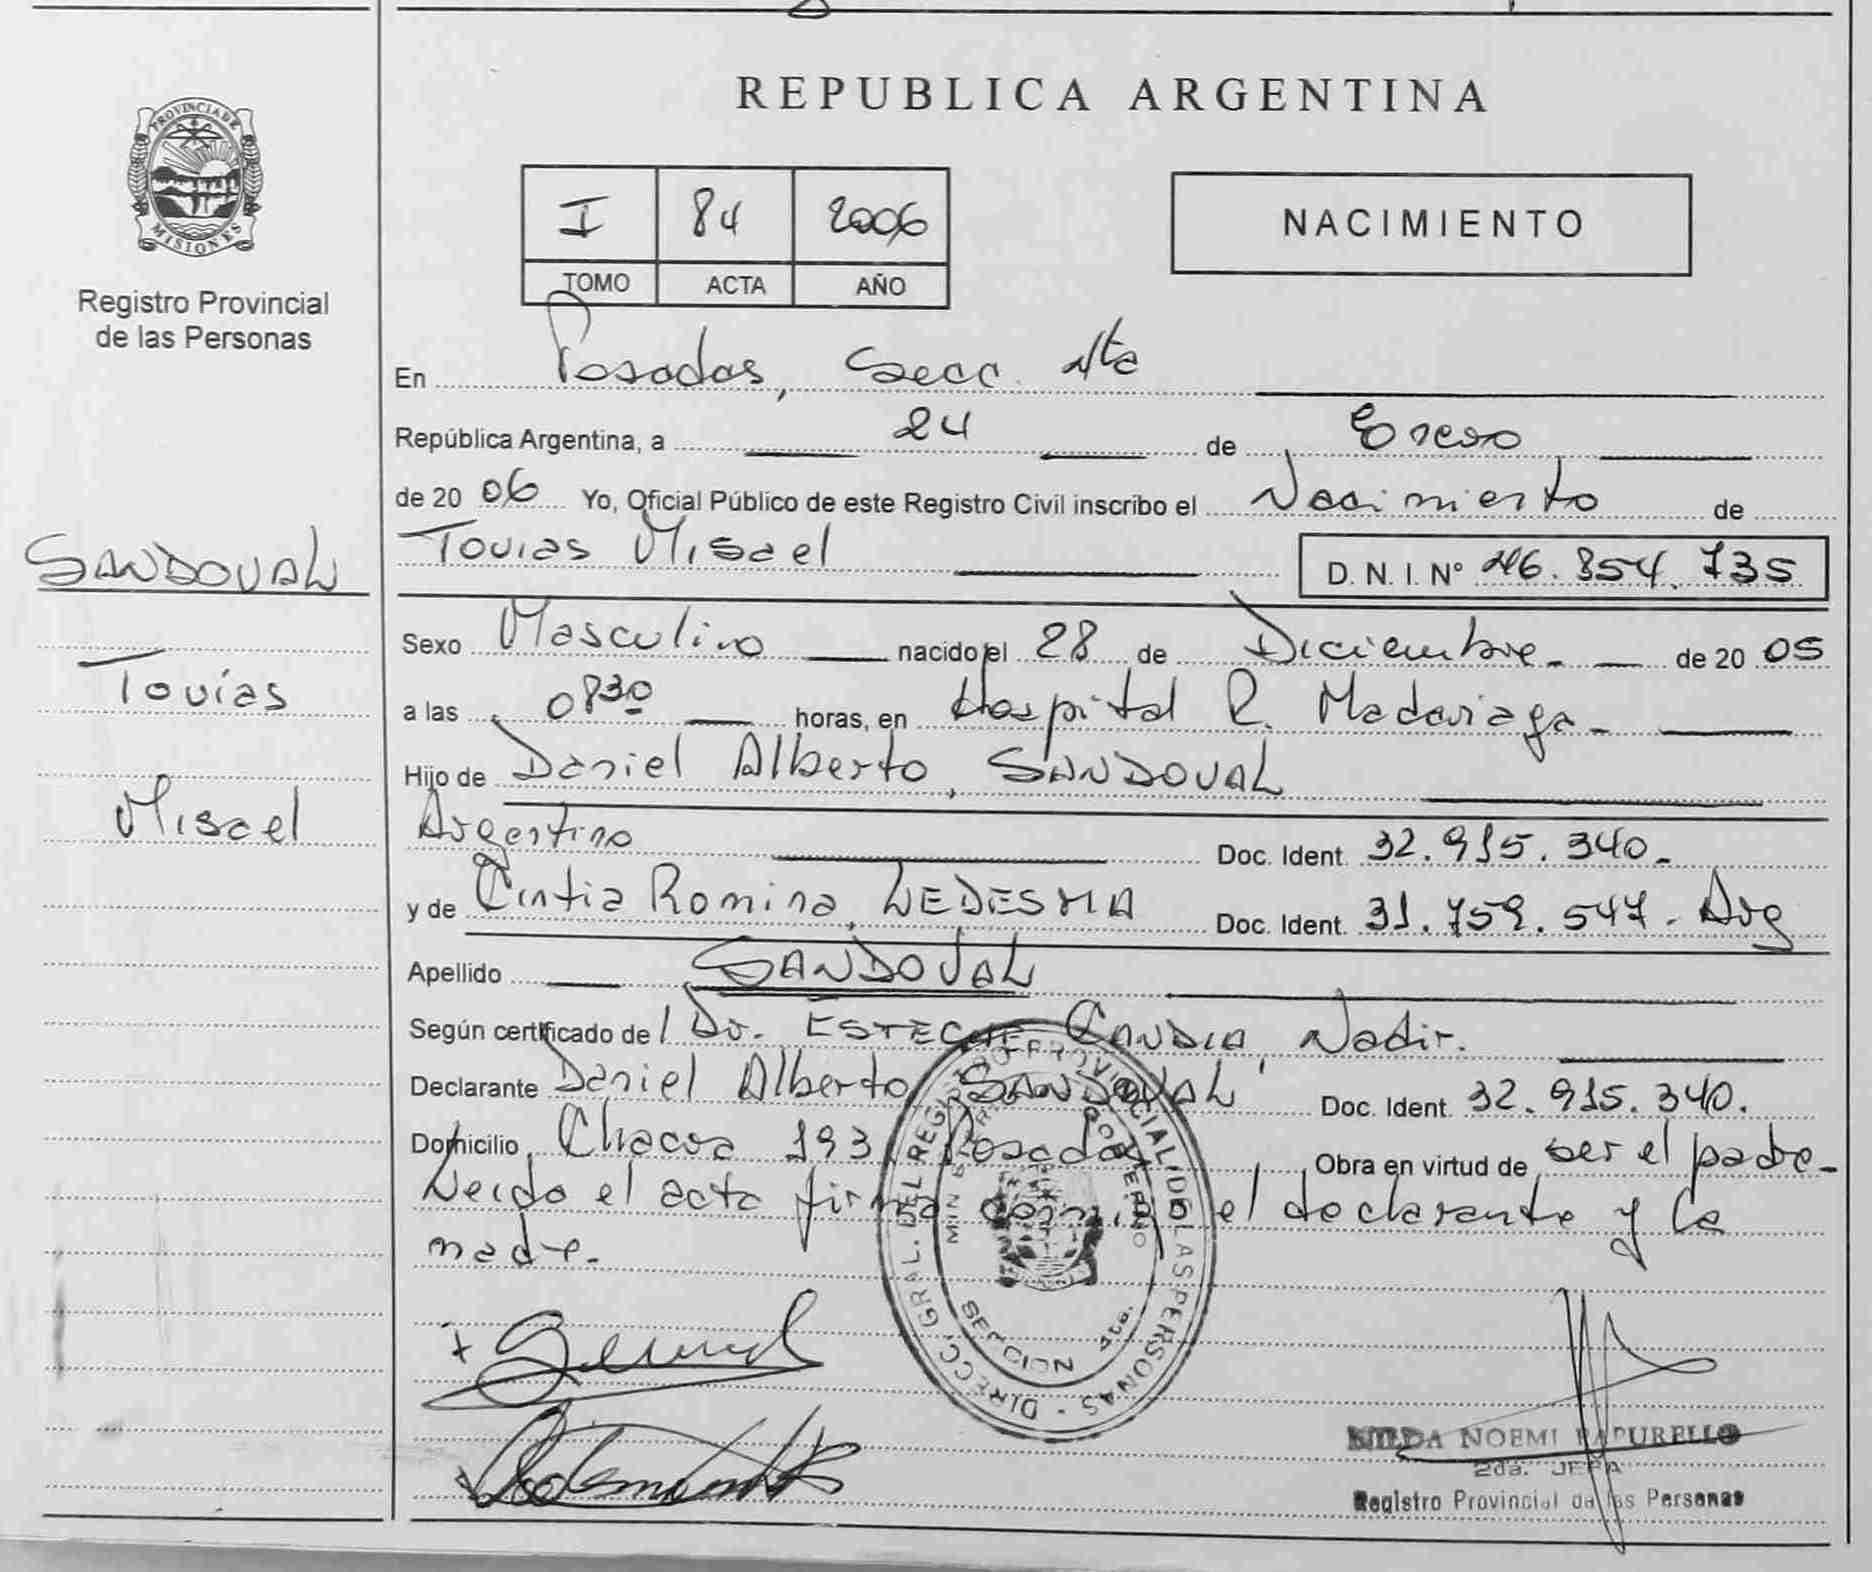 REPUBLICA ARGENTINA
PROVINCIA DE
MISIONES
Registro Provincial
de las Personas
I 84 2006
TOMO ACTA AÑO
NACIMIENTO
En Posadas, Secc. 4ta
República Argentina, a 24 de Enero
de 20 06 Yo, Oficial Público de este Registro Civil inscribo el Nacimiento de
Tovias Misael D. N. I. Nº 46.854.735
SANDOVAL
Tovías
Misael
Sexo Masculino nacido el 28 de Diciembre de 20 05
a las 0830 horas, en Hospital R. Madariaga
Hijo de Daniel Alberto, SANDOVAL
Argentino Doc. Ident. 32.915.340
y de Cintia Romina, LEDESMA Doc. Ident. 31.759.547. Arg
Apellido SANDOVAL
Según certificado de Nadir.
Declarante Daniel Alberto SANDOVAL Doc. Ident. 32.915.340.
Domicilio Chacra 193, Posadas Obra en virtud de ser el padre
Leido el acta firma conmigo el declarante y la
madre.
DIRECC. GRAL. DEL REGISTRO PROVINCIAL DE LAS PERSONAS
GOBIERNO
SECCION 4ta.
NOEMI PAPURELLO
2da. JEFA
Registro Provincial de las Personas